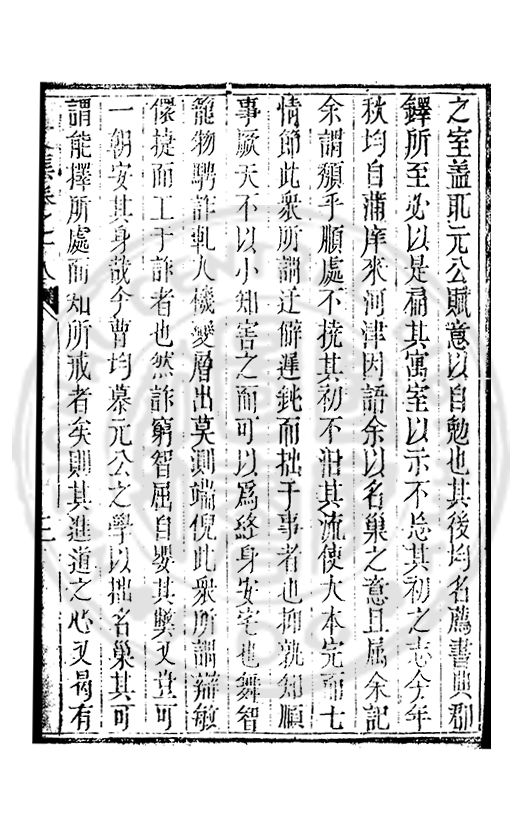 之室蓋取元公賦意以自勉也其後均名薦書典郡
鐸所至必以是扁其寓室以示不忘其初之志今年
秋均自蒲庠來河津因語余以名巢之意且屬余記
余謂頹乎順處不撓其初不汩其流使大本完而七
情節此衆所謂迂僻遲鈍而拙于事者也抑孰知順
事厥天不以小知害之而可以爲終身安宅也舞智
籠物騁詐軋人機變層出莫測端倪此衆所謂辯敏
儇捷而工于詐者也然詐窮智屈自嬰其獘又豈可
一朝安其身哉今曹均慕元公之學以拙名巢其可
謂能擇所處而知所戒者矣則其進道之心又曷有
文集卷之十八